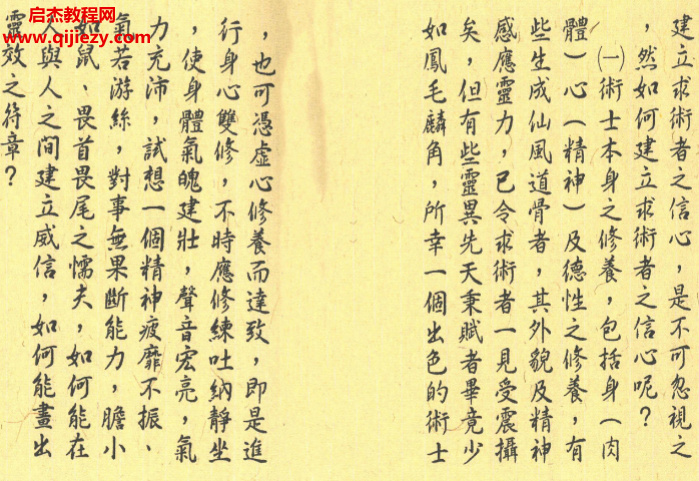 启杰教程网
www.qijiezy.com
建立求術者之信心，是不可忽視之
，然如何建立求術者之信心呢？
㈠術士本身之修養，包括身（肉
體）心（精神）及德性之修養，有
些生成仙風道骨者，其外貌及精神
感應靈力，已令求術者一見受震攝
矣，但有些靈異先天秉賦者畢竟少
如鳳毛麟角，所幸一個出色的術士
，也可憑虛心修養而達致，即是進
行身心雙修，不時應修練吐納靜坐
，使身體氣魄建壯，聲音宏亮，氣
力充沛，試想一個精神疲靡不振、
氣若游絲，對事無果斷能力，膽小
如鼠、畏首畏尾之懦夫，如何能在
人與人之間建立威信，如何能畫出
靈效之符章？